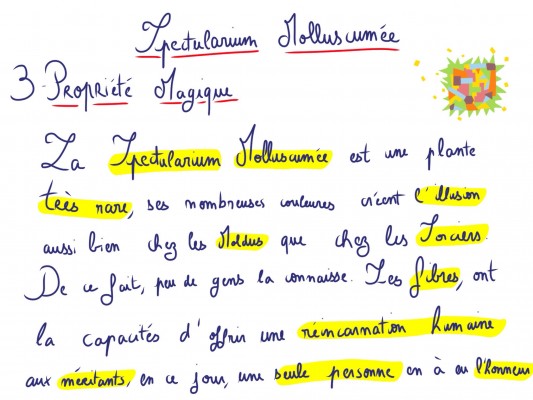 Spectularium Molluscumée
3. Propriété Magique
La Spectularium Molluscumée est une plante
très rare, ses nombreuses couleures créent l'illusion
aussi bien chez les Moldus que chez les Sorciers.
De ce fait, peu de gens la connaisse. Les fibres, ont
la capacités d'offrir une réincarnation humaine
aux méritants, en ce jour, une seule personne en à eu l'honneur